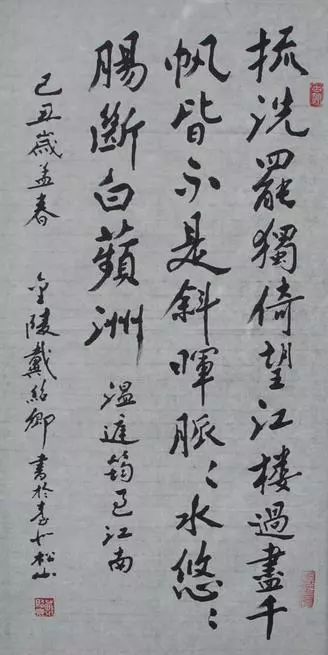 梳洗罷獨倚望江楼過盡千
帆皆不是斜暉脈〻水悠〻
腸斷白蘋洲 温庭筠 江南
己丑歲孟春 金陵戴紹卿書於松山